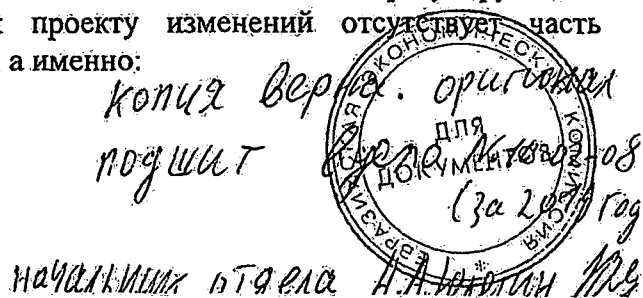 проекту изменений отсутствует часть
а именно:
копия верна. оригинал
подшит в дело
(за 20
начальник отдела Н.А.
ЕВРАЗИЙСКАЯ ЭКОНОМИЧЕСКАЯ КОМИССИЯ
ДЛЯ
ДОКУМЕНТОВ